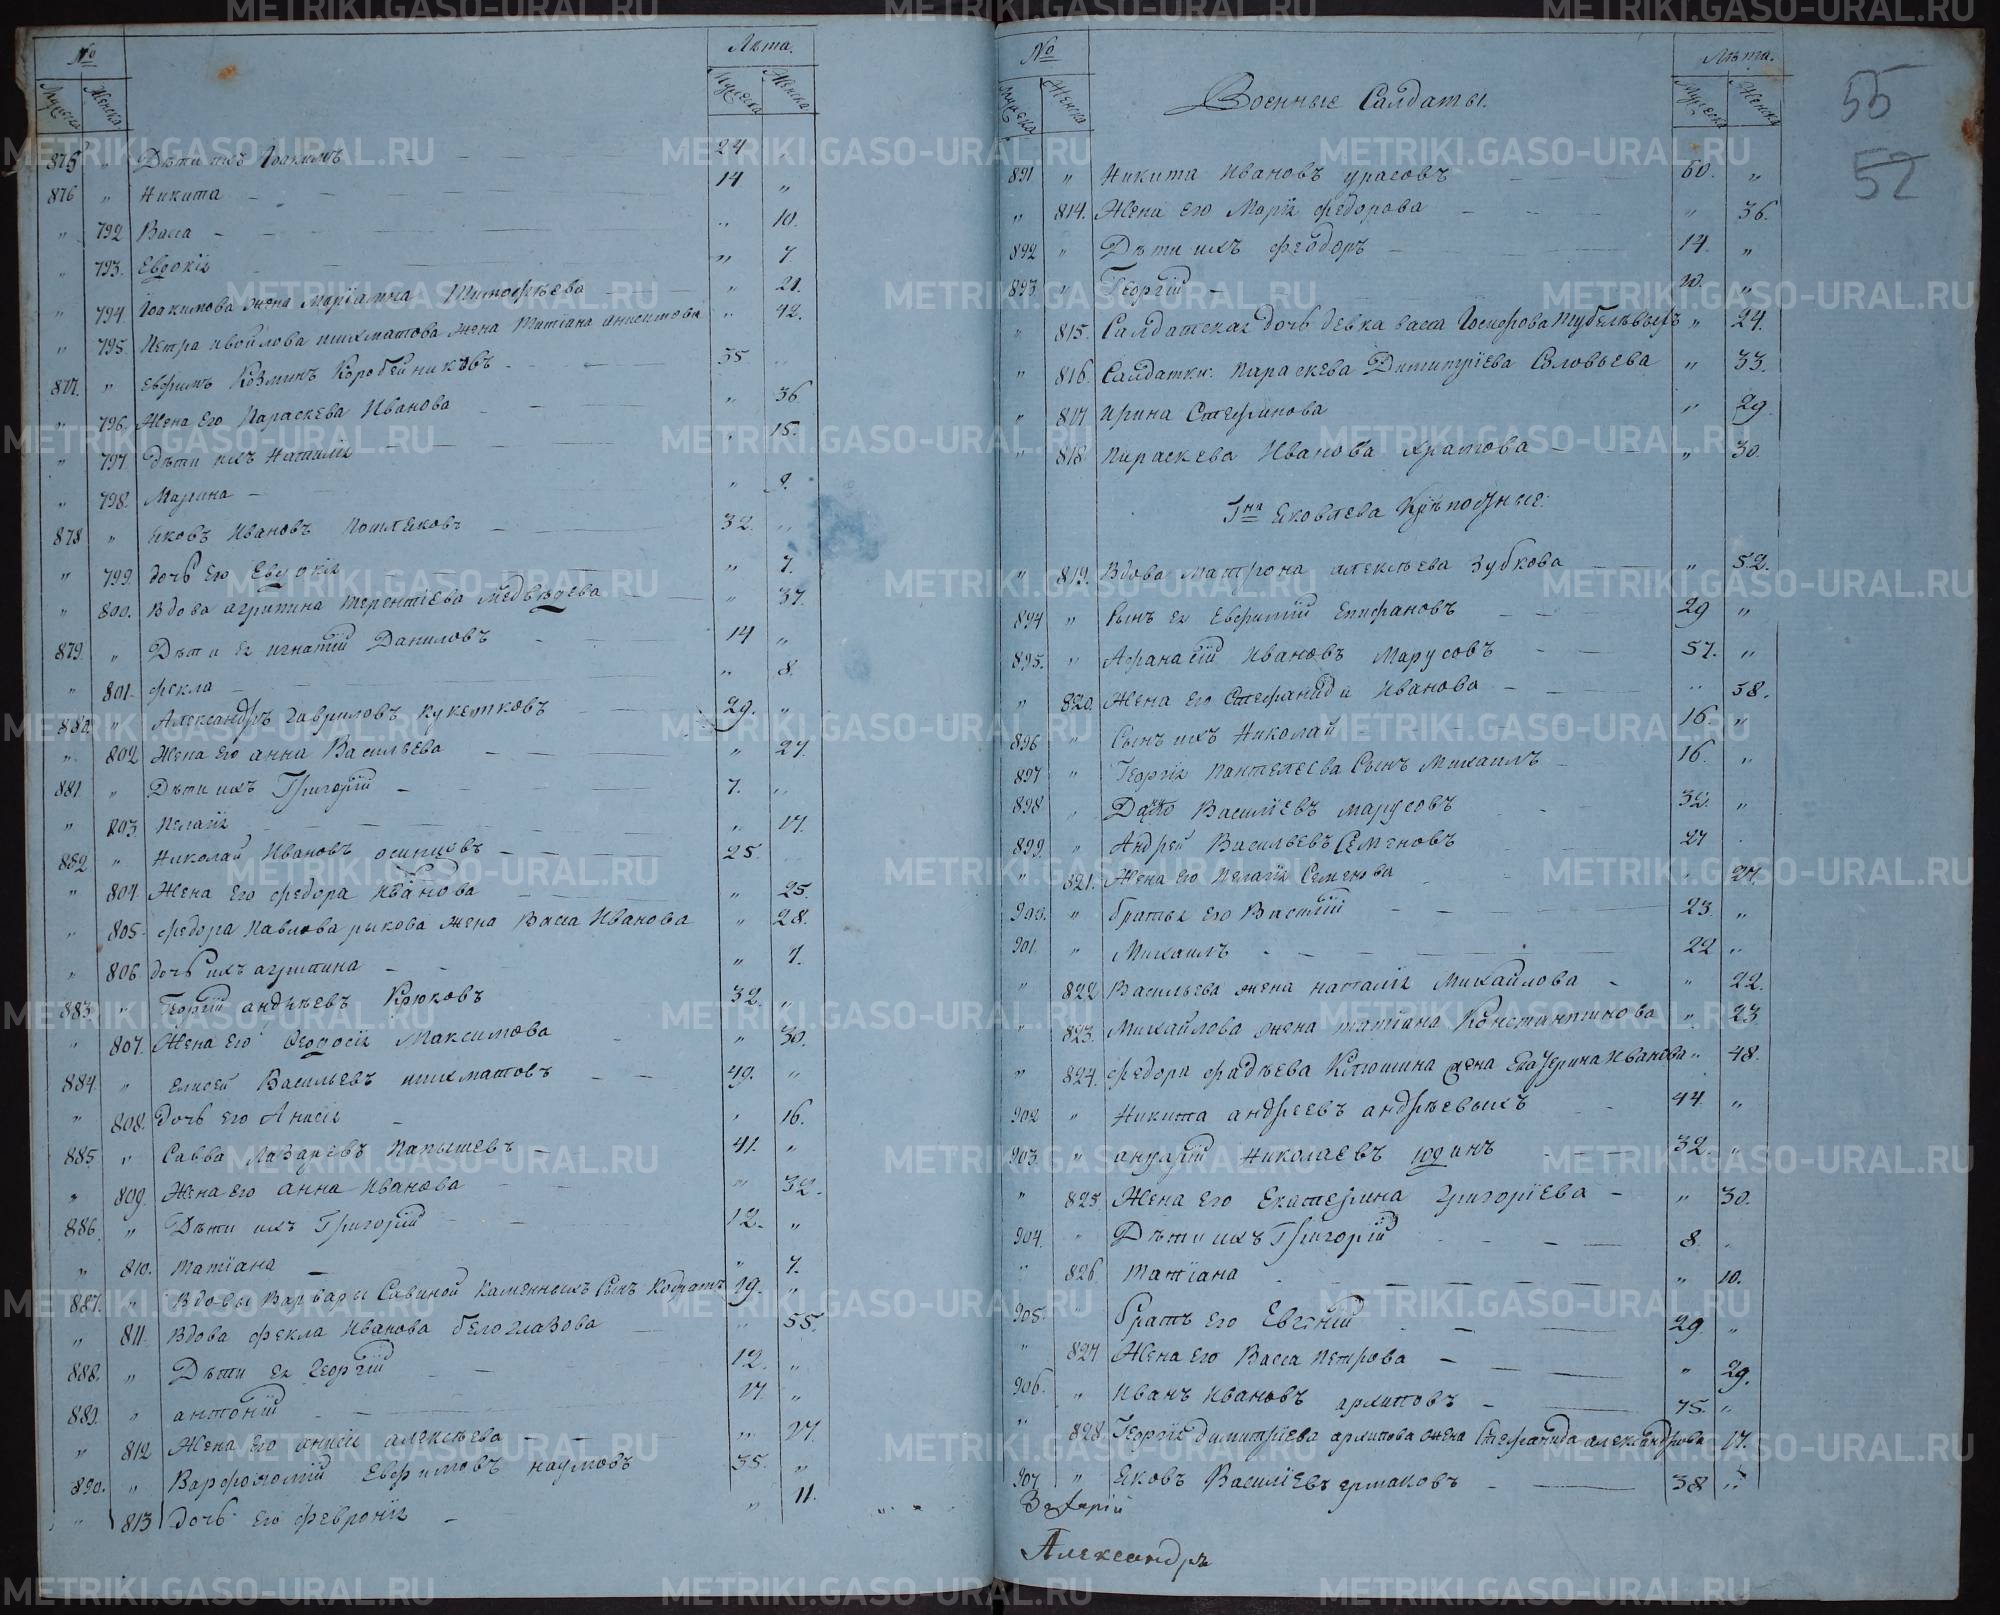 №
Лѣта.
Мужеска
Женска
Мужеска
Женска
875 " Дѣти ихъ Іоакимъ — 24 "
876 " Никита — 14 "
" 792 Васса — " 10.
" 793. Евдокія " 7
" 794. Іоакимова жена Маріамна Тимофѣева — " 21.
" 795. Петра жена Татіана " 42.
877. " Ефимъ Козминъ Коробейниковъ — 55 "
" 796. Жена его Параскева Иванова — " 36
" 797. Дѣти ихъ Наталія " 15.
" 798. Марина — " 9.
878 " Яковъ Ивановъ — 32. "
" 799. дочь его Евдокія — " 7.
" 800. Вдова агрипина терентіева Медвѣдева — " 37.
879. " Дѣти ея игнатій Даниловъ — 14 "
" 801. фекла — " 8.
880. " Александръ Гавриловъ — 29. "
" 802. Жена его анна Васильева — " 27
881. " Дѣти ихъ Григорій — 7. "
" 803 Пелагія — " 17.
882 " Николай Ивановъ осипцевъ — 25. "
" 804 Жена его федора Иванова — " 25.
" 805. федора Павлова рыкова жена Васса Иванова " 28.
" 806 дочь ихъ агрипина — " 7.
883. " Георгій андрѣевъ Крюковъ 32. "
" 807. Жена его Феодосія Максимова " 30.
884. " Елисей Васильевъ — 49. "
" 808. Дочь его Анисія — " 16.
885. " Савва Лазаревъ Папышевъ — 41. "
" 809. Жена его анна Иванова — " 32.
886. " Дѣти ихъ Григорій — 12. "
" 810. татіана — " 7.
887. " Вдовы Варвары Савиной Каменныхъ Сынъ 19. "
" 811. Вдова фекла Иванова белоглазова — " 55.
888. " Дѣти ея Георгій — 12. "
889. " антоній — 17. "
" 812 Жена его анисія алексѣева — " 27.
890. " Варфоломій Евфимовъ наумовъ 55. "
" 813 Дочь его феврония — " 11.
№
Лѣта.
Мужеска
Женска
Мужеска
Женска
55
52
Военные Салдаты.
891 " Никита Ивановъ — 60. "
" 814. Жена его Марія федорова — " 36.
892 " Дѣти ихъ феодоръ — 14. "
893. " Георгій — 10. "
" 815. Салдатская дочь девка васса Іосифова " 24.
" 816. Салдатки. параскева Димитріева Соловьева " 33.
" 817 ирина Стефанова " 29.
" 818 параскева Иванова храмова — " 30.
Гна Яковлева Крѣпостные.
" 819. Вдова матрона алексѣева Зубкова — " 52.
894 " Сынъ ея Евфимій Епифановъ — 29 "
895. " Афанасій Ивановъ Марусовъ — 57. "
" 820. Жена его Стефанида Иванова — " 58.
896 " Сынъ ихъ Николай 16. "
897 " Георгія Пантелеева Сынъ Михаилъ — 16. "
898 " Василіевъ марусовъ — 32. "
899. " Андрей Васильевъ Семеновъ 27 "
" 821. Жена его Пелагія Семенова " 27.
900. " братья его Василій — 23. "
901. " Михаилъ — 22 "
" 822 Васильева жена наталія Михайлова — " 22.
" 823. Михайлова жена татіана Константинова " 23.
" 824. федора фадѣева жена Екатерина Иванова " 48.
902 " Никита андреевъ андрѣевыхъ 44. "
903. " Николаевъ юдинъ — 32. "
" 825 Жена его Екатерина григоріева — " 30.
904. " Дѣти ихъ Григорій — 8. "
" 826. татіана — " 10.
905. " братъ его Евгеній — 29. "
" 827 Жена его Васса петрова — " 29.
906. " Иванъ Ивановъ архиповъ — 75. "
" 828. Георгія димитріева архипова жена Стефанида александрова 17.
907 " Яковъ Василіевъ ермаковъ — 38 "
Захарій
Александръ